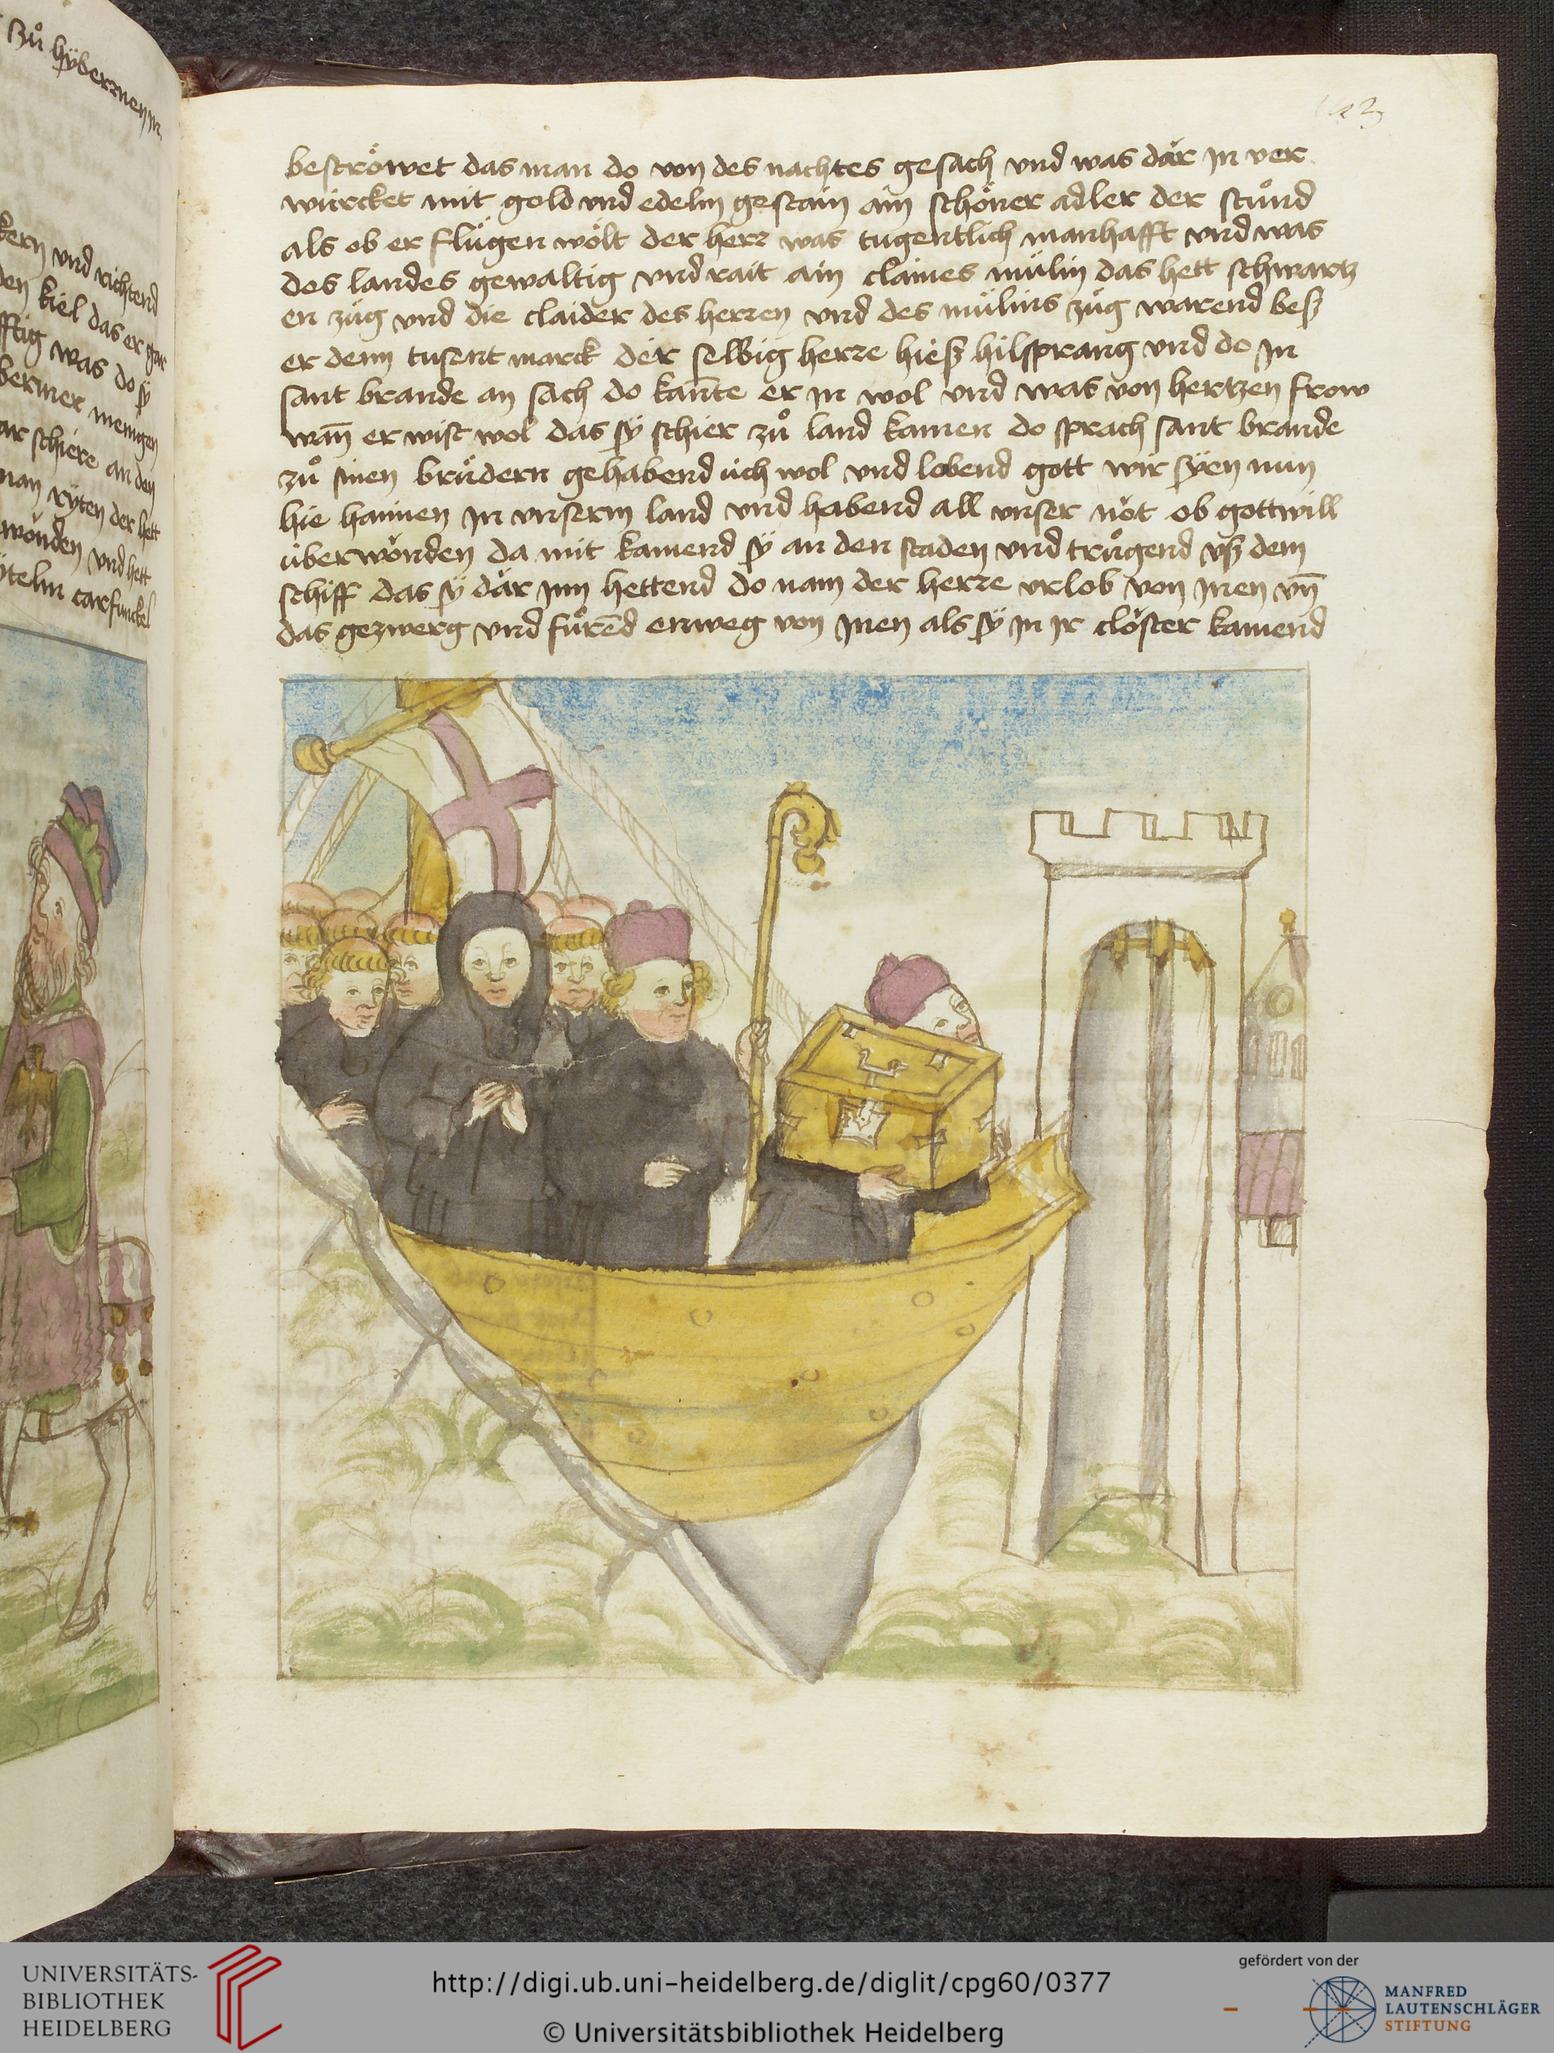 Zuͦ hÿbernen jn
kern vnd richtend
den kiel das er gar
fftig was do sÿ
berner mengen
ar schiere an den
man rÿten der hett
wunden vnd hett
ÿteln carfunckel
beströwet das man do von des nachtes gesach vnd was dar jn ver
würcket mit gold vnd edelm gestain ain schöner adler der stuͦnd
als ob er flügen wölt der herr was tugentlich manhafft vnd was
des landes gewaltig vnd rait ain claines mülin das hett schwartz
en züg vnd die claider des herren vnd des mülins züg warend beß
er denn tusent marck der selbig herre hieß hilsprang vnd do jn
sant brande an sach do kante er jn wol vnd was von hertzen frow
wañ er wist wol das sÿ schier zuͦ land kamen do sprach sant brande
zuͦ sinen brüdern gehabend üch wol vnd lobend gott wir sÿen nun
hie haimen jn vnserm land vnd habend all vnser nöt ob gott will
überwunden da mit kamend sÿ an den staden vnd truͦgend vß dem
schiff das sÿ där jnn hettend do nam der herre vrlob von jnen vñ
das gezwerg vnd fuͦrēd enweg von jnen als sÿ jn jr closter kamend
UNIVERSITÄTS-
BIBLIOTHEK
HEIDELBERG
http://digi.ub.uni-heidelberg.de/diglit/cpg60/0377
© Universitätsbibliothek Heidelberg
gefördert von der
MANFRED
LAUTENSCHLÄGER
STIFTUNG